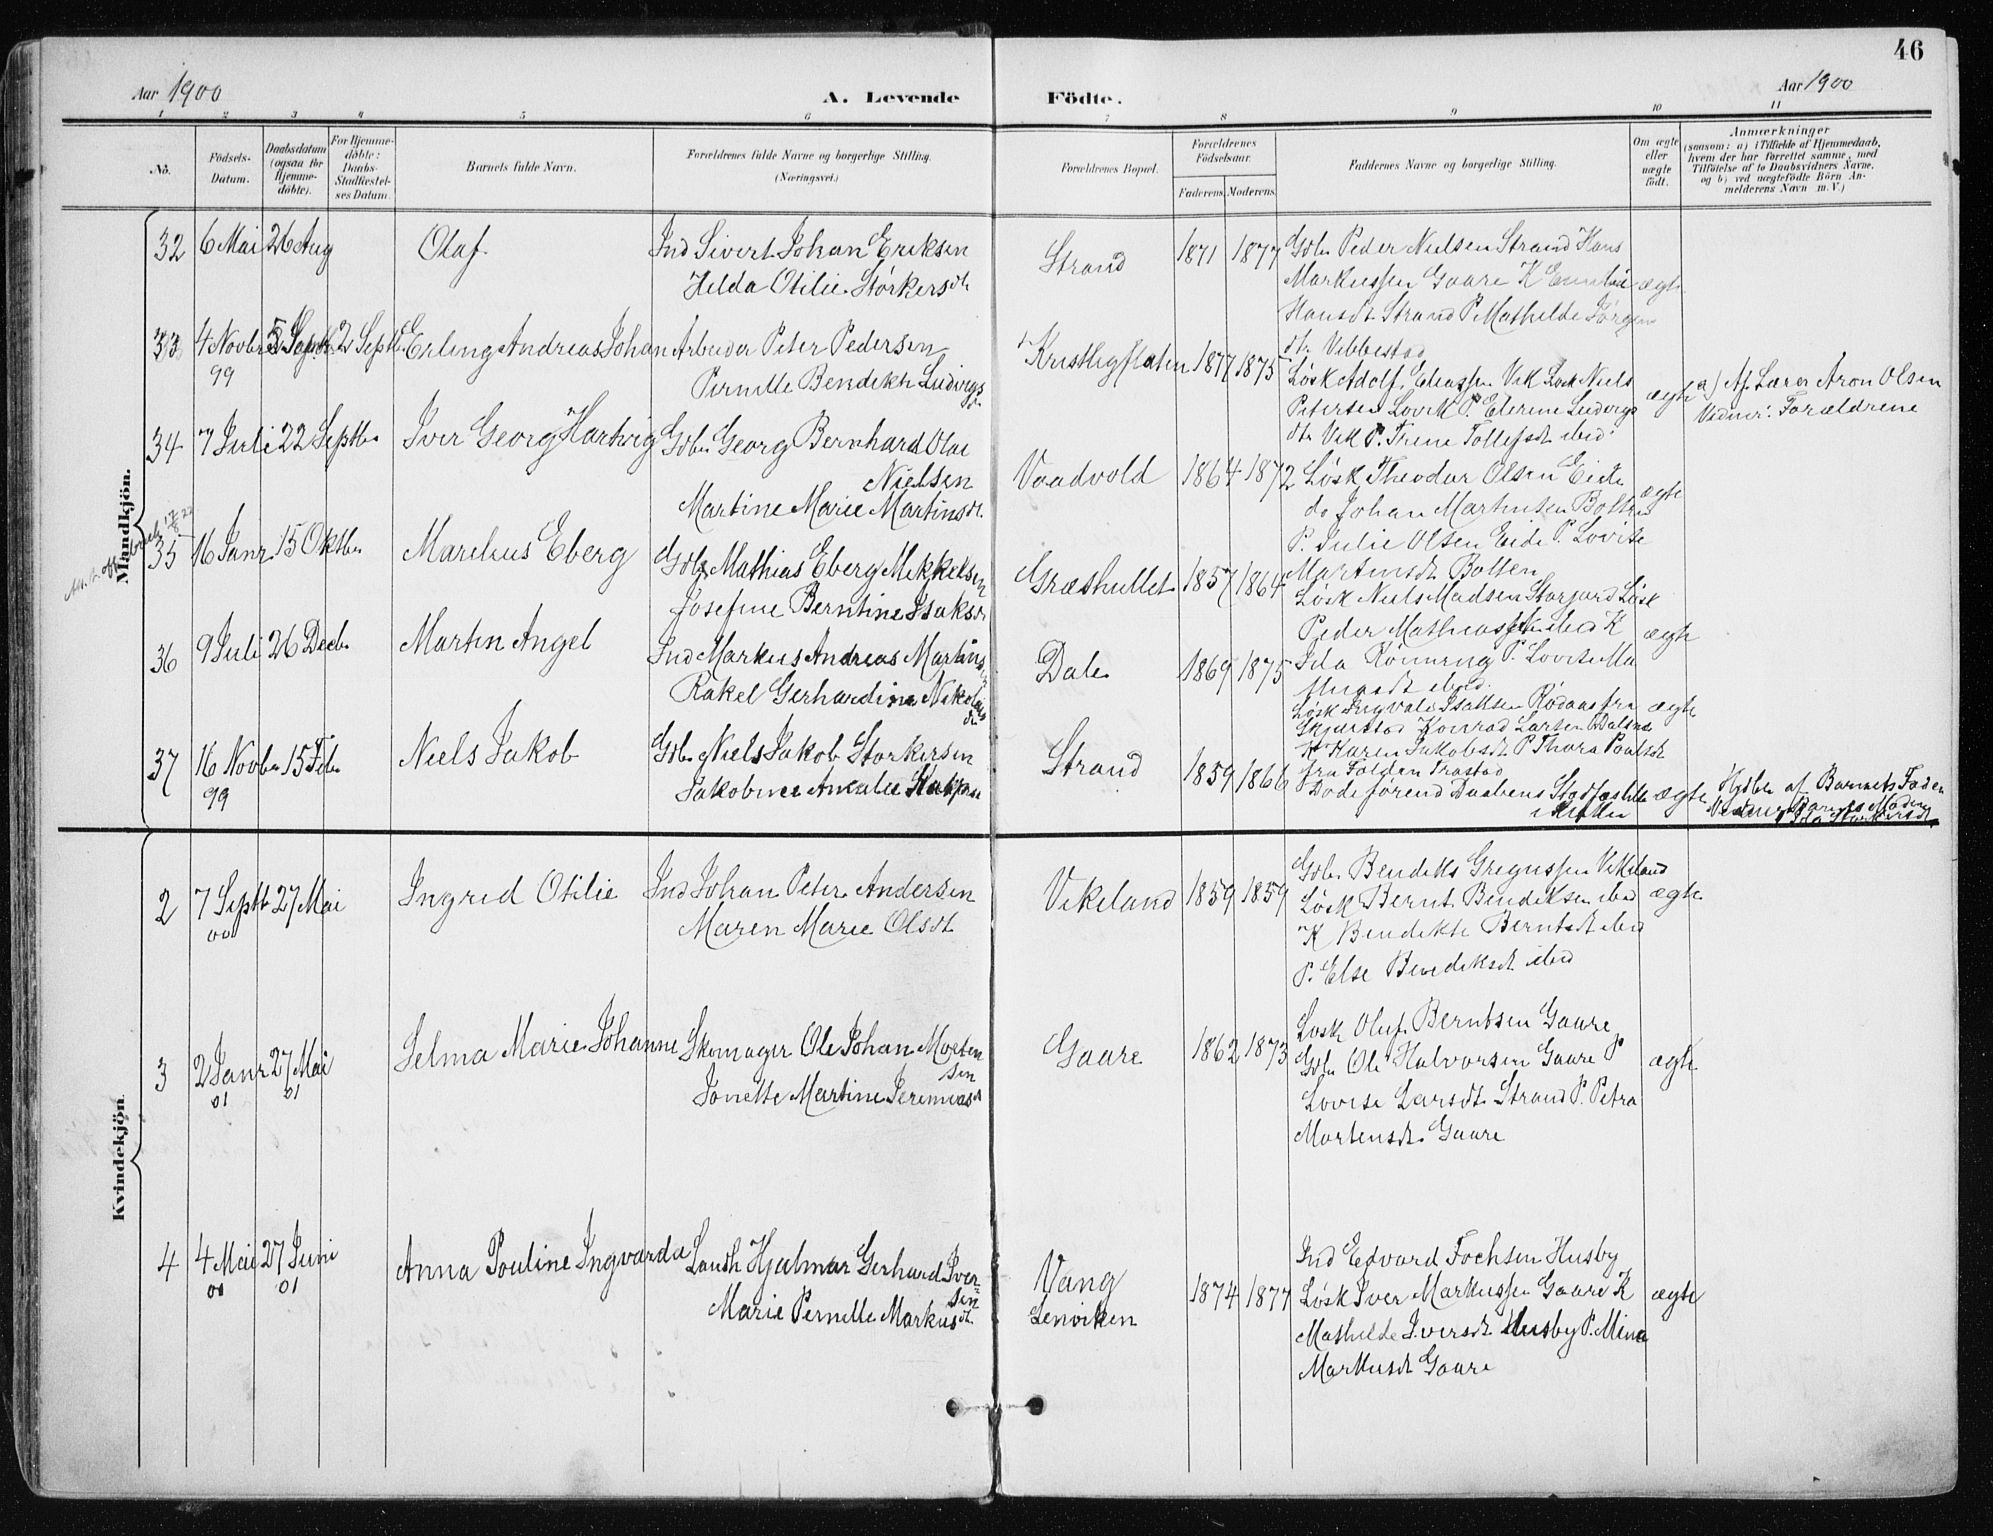 46
Aar 1900 A. Levende Födte. Aar 1900
1 2 3 4 5 6 7 8 9 10 11
No.
Födsels-
Datum.
Daabsdatum
(ogsaa for
Hjemme-
döbte).
For Hjemme-
döbte:
Daabs-
Stadfæstel-
ses Datum.
Barnets fulde Navn.
Forældrenes fulde Navne og borgerlige Stilling.
(Næringsvei.)
Forældrenes Bopæl.
Forældrenes
Födselsaar.
Faderens. Moderens.
Faddernes Navne og borgerlige Stilling.
Om ægte
eller
uægte
födt.
Anmærkninger
(saasom: a) i Tilfælde af Hjemmedaab,
hvem der har forrettet samme, med
Tilföielse af to Daabsvidners Navne.
og b) ved uægtefödte Börn An-
melderens Navn m. V.)
Mandkjön.
32 6 Mai 26 Aug Olaf Ind Sivert Johan Eriksen
Hilda Otilie Størkersdt
Strand 1871 1877 Gdbr Peder Nielsen Strand Hans
Markussen Gaare K Emilie
Hansdt Strand P. Mathilde Jørgens
dtr Vibbestad
ægte
33 4 Novbr 99 2 Septbr Erling Andreas Johan Arbeider Peter Pedersen
Pernille Bendikte Ludvigs
dtr
Kristligflaten 1877 1875 Løsk Adolf Eliassen Vik Løsk Niels
Petersen Lovik P. Elerine Ludvigs
dtr Vik P. Trine Tollefsdt ibid
ægte a) Af Lærer Aron Olsen
Vidner: Forældrene
34 7 Juli 22 Septbr Iver Georg Hartvig Gdbr Georg Bernhard Olai
Nielsen
Martine Marie Martinsdt.
Vaadvold 1864 1872 Løsk Theodor Olsen Eide
do Johan Martinsen Bolten
P. Julie Olsen Eide P. Lovise
Martinsdt Bolten
ægte
35 16 Janr 15 Oktbr Marelius Eberg Gdbr Mathias Eberg Mikkelsen
Josefine Berntine Isaksdt
Græshullet 1857 1864
Løsk Niels Madsen Storjord Løsk
Peder Mathiassen ibid K
Ida Rønning P. Lovise Ma
ibid.
ægte
36 9 Juli 26 Decbr Martin Angel Ind Markus Andreas Martins
Rakel Gerhardine Nikolais
dtr
Dale 1869 1875
Løsk Ingvald Isaksen Rødaas fra
Skjærstad Konrad Larsen Dalsnes
K Karen Jakobsdt P Thora Paulsdt
fra Folden Trastad
ægte
37 16 Novbr 99 15 Feb Niels Jakob Gdbr Niels Jakob Størkersen
Jakobine Amalie
Strand 1859 1866 Døde førend Daabens Stadfæstelse
i Kirken
ægte Hjdbt af Barnets Fader
Vidner Barnets Moder
Ida Størkersdt
Kvindekjön.
2 7 Septb 00 27 Mai Ingrid Otilie Ind Johan Peter Andersen
Maren Marie Olsdt
Vikeland 1859 1859 Gdbr Bendiks Gregussen Vikeland
Løsk Bernt Bendiksen ibid
K Bendikte Berntsdt ibid
P. Else Bendiksdt ibid
ægte
3 2 Janr 01 27 Mai 01 Selma Marie Johanne Skomager Ole Johan Morten
sen
Jonette Martine Jeremiasdt
Gaare 1862 1873 Løsk Oluf Berntsen Gaare
Gdbr Ole Halvorsen Gaare P
Lovise Larsdt Strand P. Petra
Mortensdt Gaare
ægte
4 4 Mai 00 27 Juni 01 Anna Pouline Ingvarda Landh Hjalmar Gerhard Iver-
sen
Marie Pernille Markusdt.
Vang
Lenviken
1874 1877 Ind Edvard Fochsen Husby
Løsk Iver Markussen Gaare K
Mathilde Iversdt Husby P. Mina
Markusdt Gaare
ægte